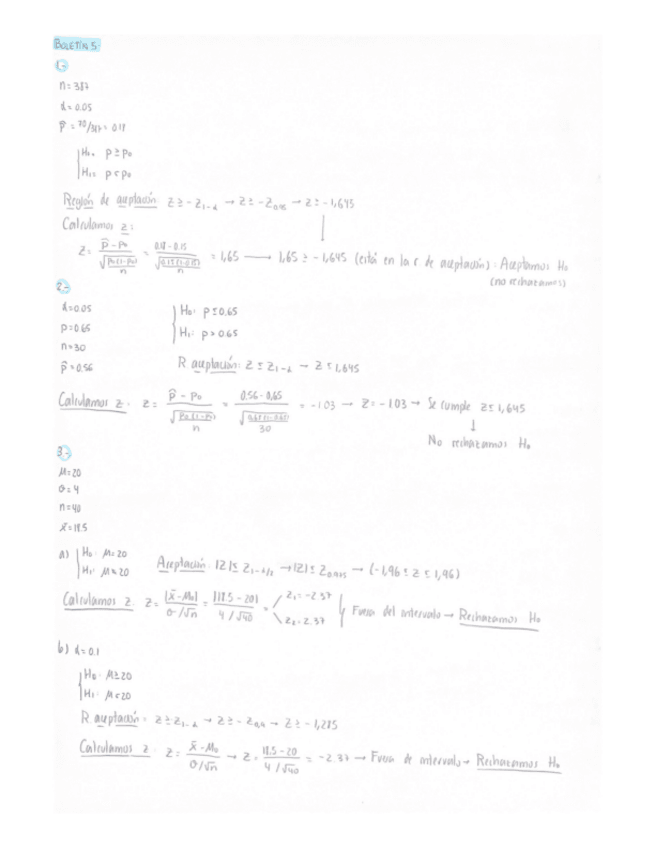 BOLETÍN 5
1.-
n = 387
α = 0.05
p̂ = 70/387 = 0.18
H₀: p ≥ p₀
H₁: p < p₀
Región de aceptación z ≥ -z₁₋α → z ≥ -z₀.₉₅ → z ≥ -1,645
Calculamos z:
z = (p̂ - p₀)/√(p₀(1-p₀)/n) = (0.18 - 0.15)/√(0.15(1-0.15)/n) = 1,65 → 1,65 ≥ -1,645 (está en la r de aceptación): Aceptamos H₀
(no rechazamos)
2.-
α = 0.05
H₀: p ≤ 0.65
p = 0.65
H₁: p > 0.65
n = 30
p̂ = 0.56
R aceptación: z ≤ z₁₋α → z ≤ 1,645
Calculamos z: z = (p̂ - p₀)/√(p₀(1-p₀)/n) = (0.56 - 0.65)/√(0.65(1-0.65)/30) = -1.03 → z = -1.03 → Se cumple z ≤ 1,645
↓
No rechazamos H₀
3.-
μ = 20
σ = 4
n = 40
x̄ = 18.5
a) H₀: μ = 20
H₁: μ ≠ 20
Aceptación: |z| ≤ z₁₋α/₂ → |z| ≤ z₀.₉₇₅ → (-1,96 ≤ z ≤ 1,96)
Calculamos z: z = |x̄ - μ₀|/(σ/√n) = |18.5 - 20|/(4/√40) = z₁ = -2.37
z₂ = 2.37
Fuera del intervalo → Rechazamos H₀
b) α = 0.1
H₀: μ ≥ 20
H₁: μ < 20
R aceptación = z ≥ z₁₋α → z ≥ -z₀,₉ → z ≥ -1,285
Calculamos z: z = (x̄ - μ₀)/(σ/√n) → z = (18.5 - 20)/(4/√40) = -2.37 → Fuera de intervalo → Rechazamos H₀